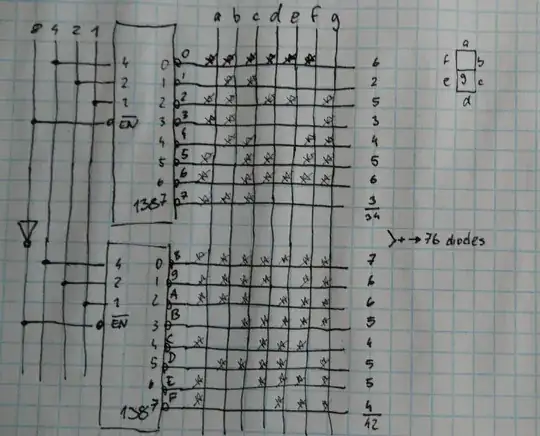 8 4 2 1
a b c d e f g
a
f b
g
e c
d
4 0 0 6
2 1 1 2
1 2 2 5
EN 3 3 3
4 4 4
5 5 5
6 6 6
138 7 7 3
34
}+→76 diodes
4 0 8 7
2 1 9 6
1 2 A 6
EN 3 B 5
4 C 4
5 D 5
6 E 5
138 7 F 4
42